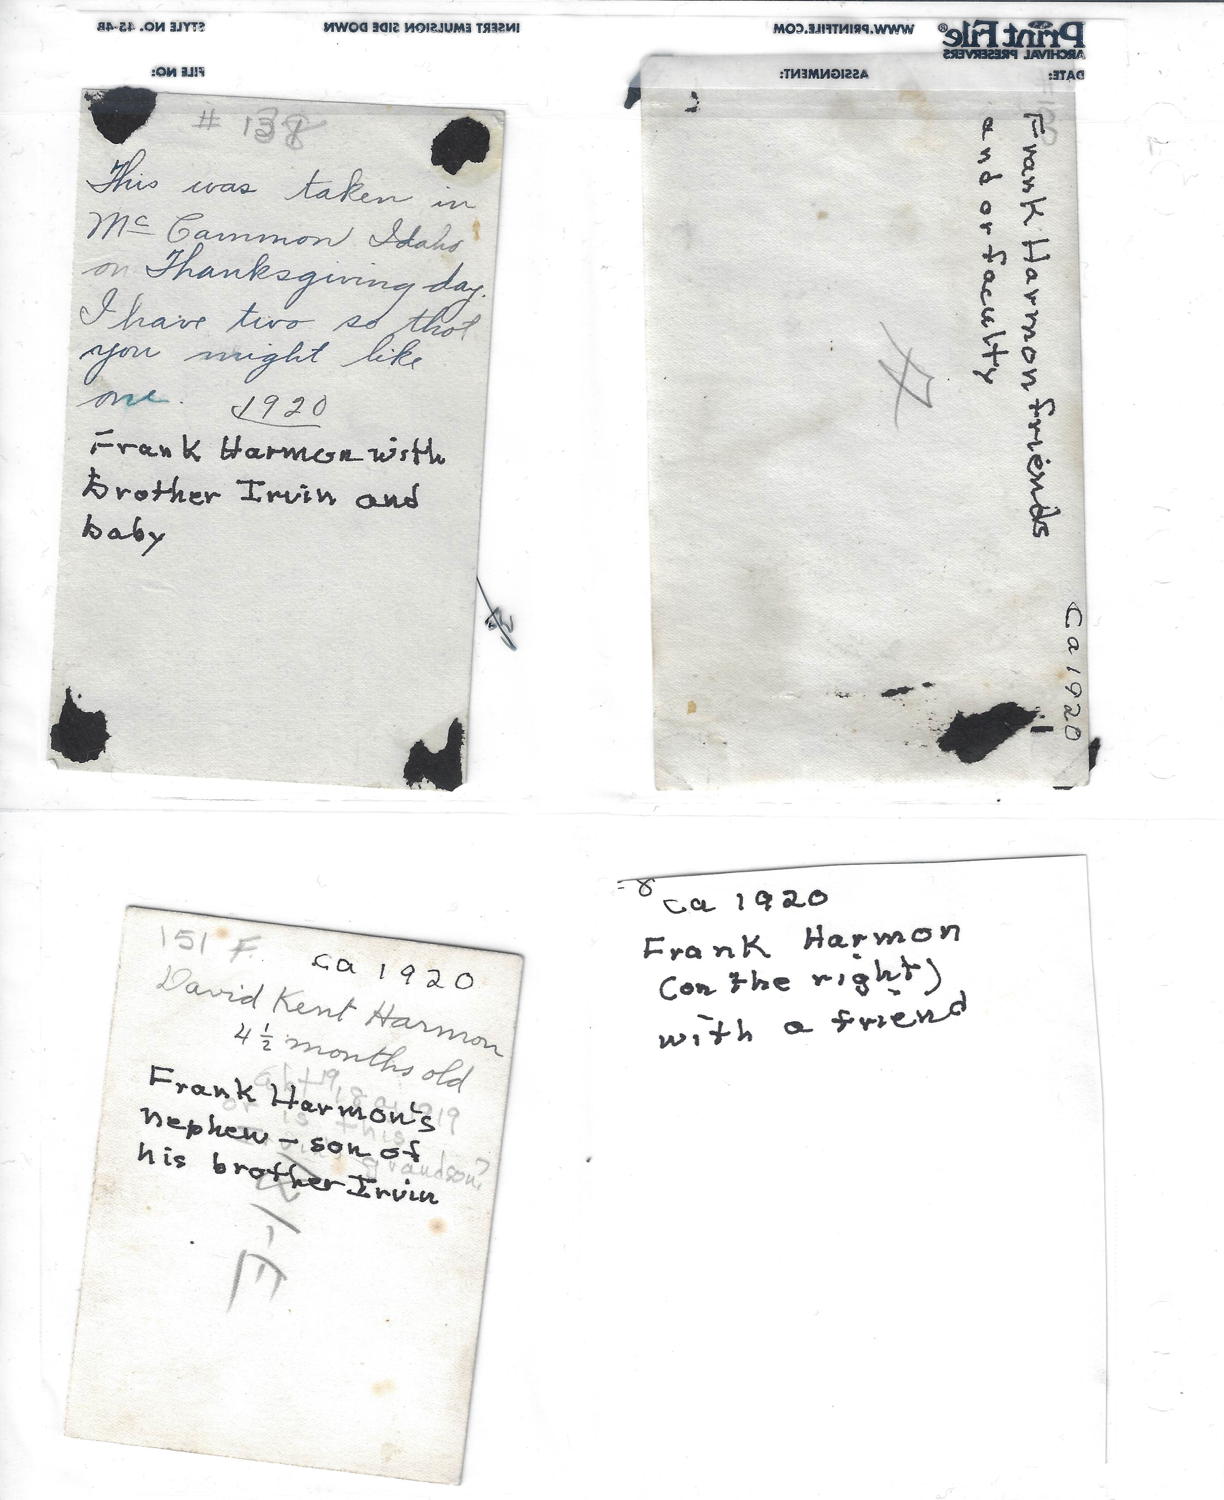 STYLE NO. 45-4B
INSERT EMULSION SIDE DOWN
WWW.PRINTFILE.COM
Print File®
ARCHIVAL PRESERVERS
FILE NO:
ASSIGNMENT:
DATE:
# 138
This was taken in
Mc Cammon Idaho
on Thanksgiving day.
I have two so that
you might like
one. 1920
Frank Harmon with
brother Irvin and
baby
Frank Harmon friends
and or faculty
Ca 1920
151 F.
ca 1920
David Kent Harmon
4 ½ months old
Frank Harmon's
nephew - son of
his brother Irvin
or is this
grandson?
ca 1920
Frank Harmon
(on the right)
with a friend